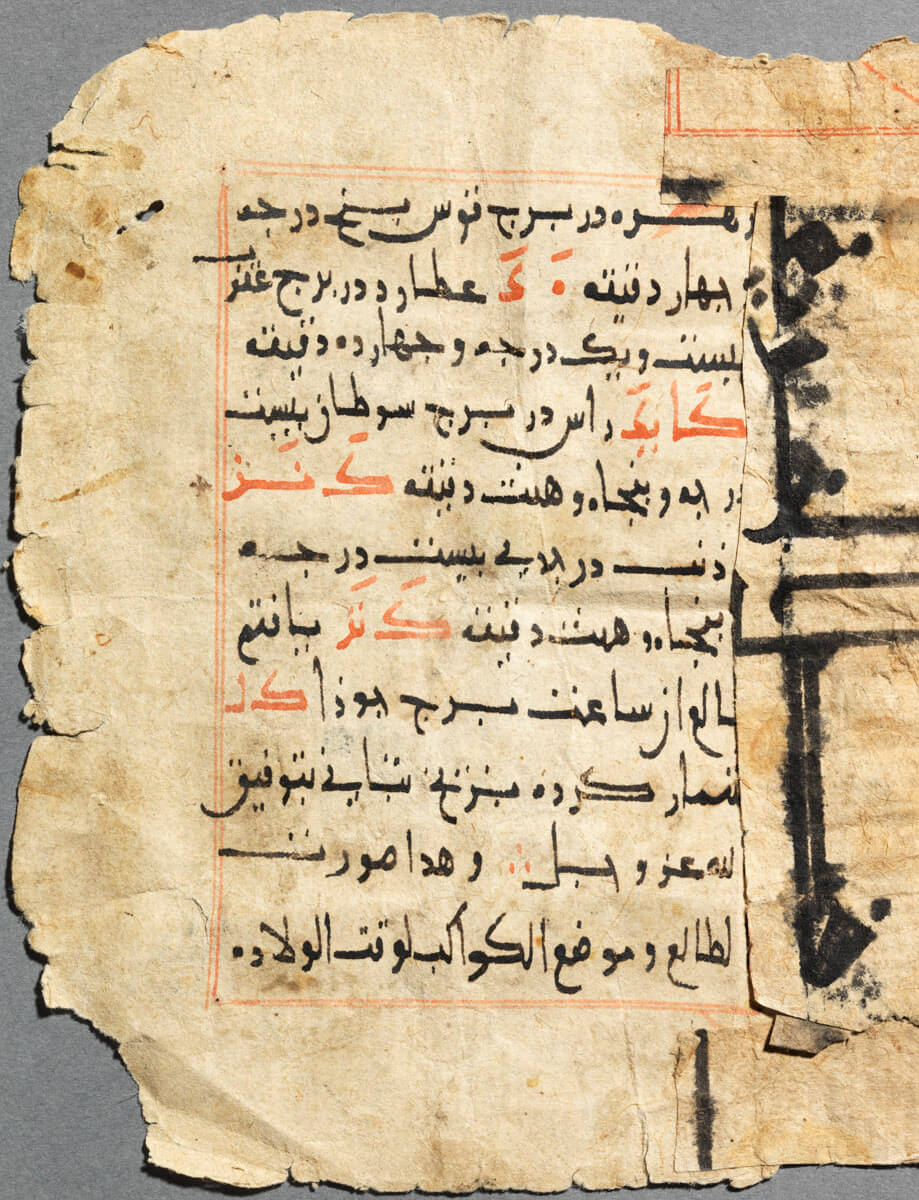 زهره در برج قوس پنج درجه
جهار دقيقه ه د عطارد در برج عقرب
بيست ويک درجه و جهارده دقيقه
کا يد راس در برج سرطان بيست
درجه و بنجاه و هفت دقيقه ک نز
ذنب در جدي بيست درجه
بنجاه و هفت دقيقه ک نز يافتم
طالع از ساعت برج جوزا ک ل
شمار کرده بتوفيق
الله عز و جل وهذا صورت
الطالع و موضع الکواکب لوقت الولاده